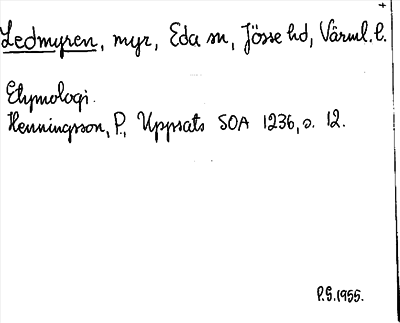 +
Ledmyren, myr, Eda sn, Jösse hd, Värml. l.
Etymologi.
Henningsson, P., Uppsats SOA 1236, s. 12.
P.G. 1955.